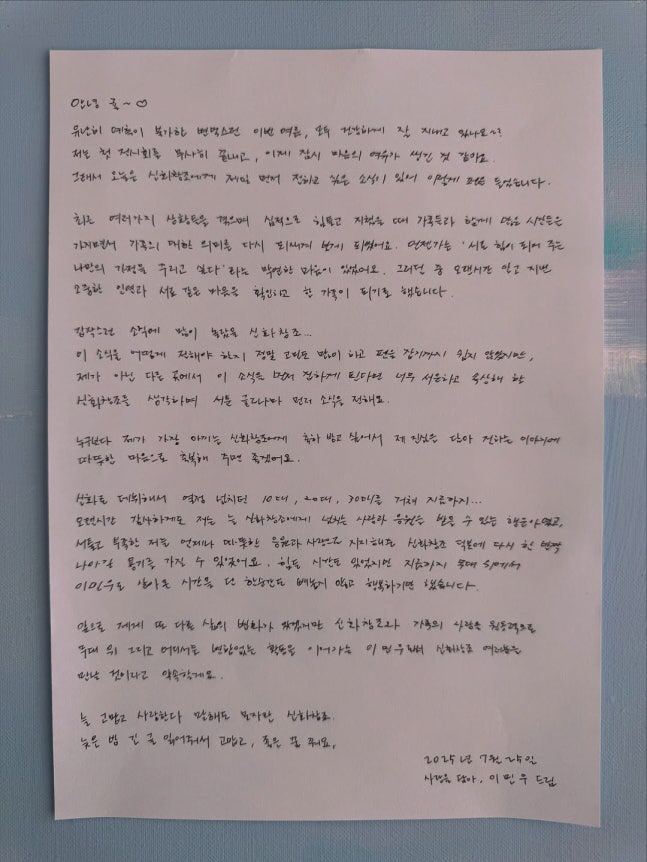 안녕 귤~♡
유난히 예측이 불가한 변덕스런 이번 여름, 모두 건강하게 잘 지내고 있나요~?
저는 첫 전시회를 무사히 끝내고, 이제 잠시 마음의 여유가 생긴 것 같아요.
그래서 오늘은 신화창조에게 제일 먼저 전하고 싶은 소식이 있어 이렇게 펜을 들었습니다.
최근 여러가지 상황들을 겪으며 심적으로 힘들고 지쳤을 때 가족들과 함께 많은 시간들을
가지면서 가족의 대한 의미를 다시 되새겨 보게 되었어요. 언젠가는 '서로 힘이 되어 주는
나만의 가정을 꾸리고 싶다'라는 막연한 마음이 있었어요. 그러던 중 오랜시간 알고 지낸
소중한 인연과 서로 같은 마음을 확인하고 한 가족이 되기로 했습니다.
갑작스런 소식에 많이 놀랐을 신화창조...
이 소식을 어떻게 전해야 하지 정말 고민도 많이 하고 펜을 잡기까지 쉽지 않았지만,
제가 아닌 다른 곳에서 이 소식을 먼저 전하게 된다면 너무 서운하고 속상해 할
신화창조를 생각하며 서툰 글로나마 먼저 소식을 전해요.
누구보다 제가 가장 아끼는 신화창조에게 축하 받고 싶어서 제 진심을 담아 전하는 이야기에
따뜻한 마음으로 축복해 주면 좋겠어요.
신화로 데뷔해서 열정 넘치던 10대, 20대, 30대를 거쳐 지금까지...
오랜시간 감사하게도 저는 늘 신화창조에게 넘치는 사랑과 응원을 받을 수 있는 행운아였고,
서툴고 부족한 저를 언제나 따뜻한 응원과 사랑으로 지지해준 신화창조 덕분에 다시 한 번 꽉
나아갈 용기를 가질 수 있었어요. 힘든 시간도 있었지만 지금까지 무대 위에서
이민우로 살아온 시간을 단 한순간도 빼놓지 않고 행복하기만 했습니다.
앞으로 제게 또 다른 삶의 변화가 있겠지만 신화창조와 가족의 사랑을 원동력으로
무대 위 그리고 어디서든 변함없는 활동을 이어가는 이민우로 신화창조 여러분을
만날 것이라고 약속할게요.
늘 고맙고 사랑한다 말해도 모자란 신화창조
늦은 밤 긴 글 읽어줘서 고맙고, 좋은 꿈 꿔요.
2025년 7월 25일
사랑을 담아, 이민우 드림